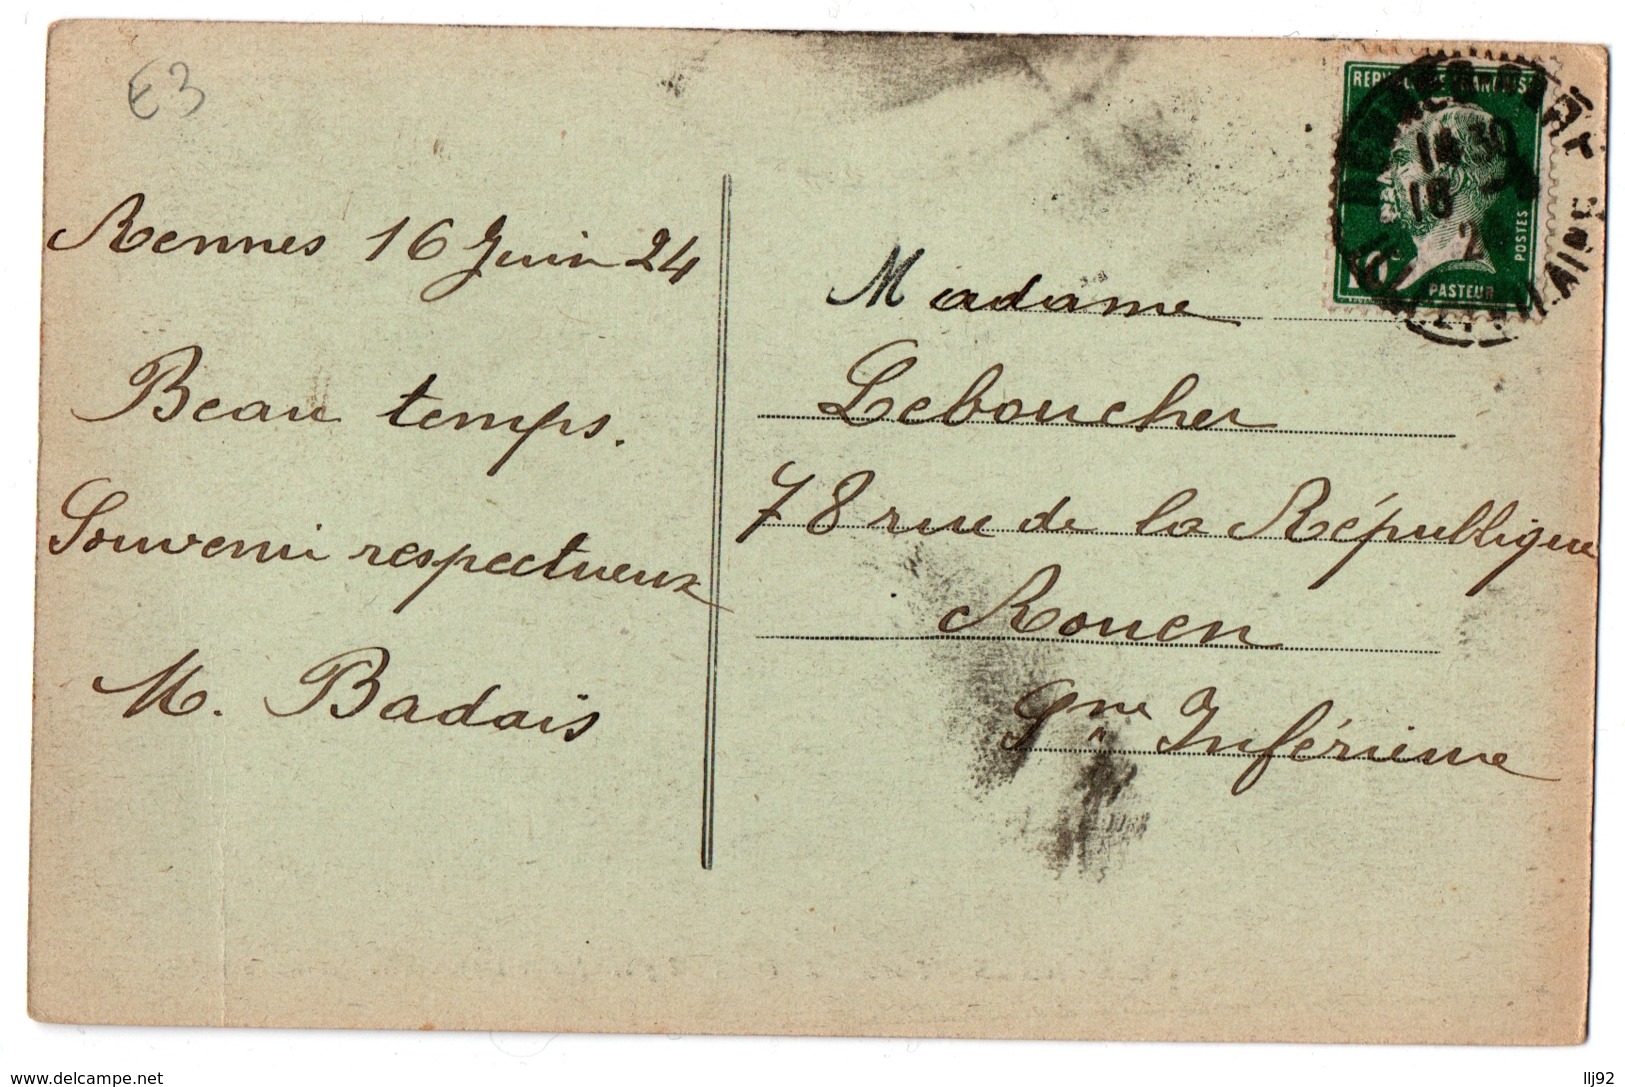 E3
Rennes 16 Juin 24
Beau temps.
Souvenir respectueux
M. Badais
REPUBLIQUE FRANÇAISE
14 30
16
2
10
POSTES
PASTEUR
Madame
Leboucher
78 rue de la République
Rouen
Sne Inférieure
www.delcampe.net
llj92